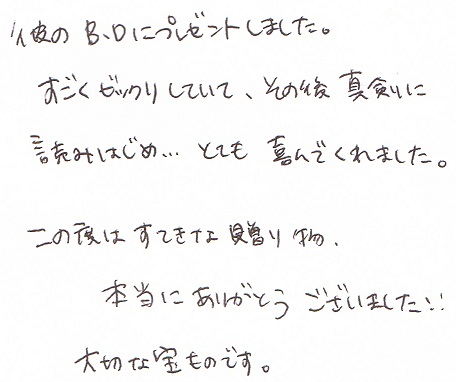 彼のB.Dにプレゼントしました。
すごくビックリしていて、その後真剣に
読みはじめ…とても喜んでくれました。
この度はすてきな贈り物、
本当にありがとうございました!!
大切な宝ものです。